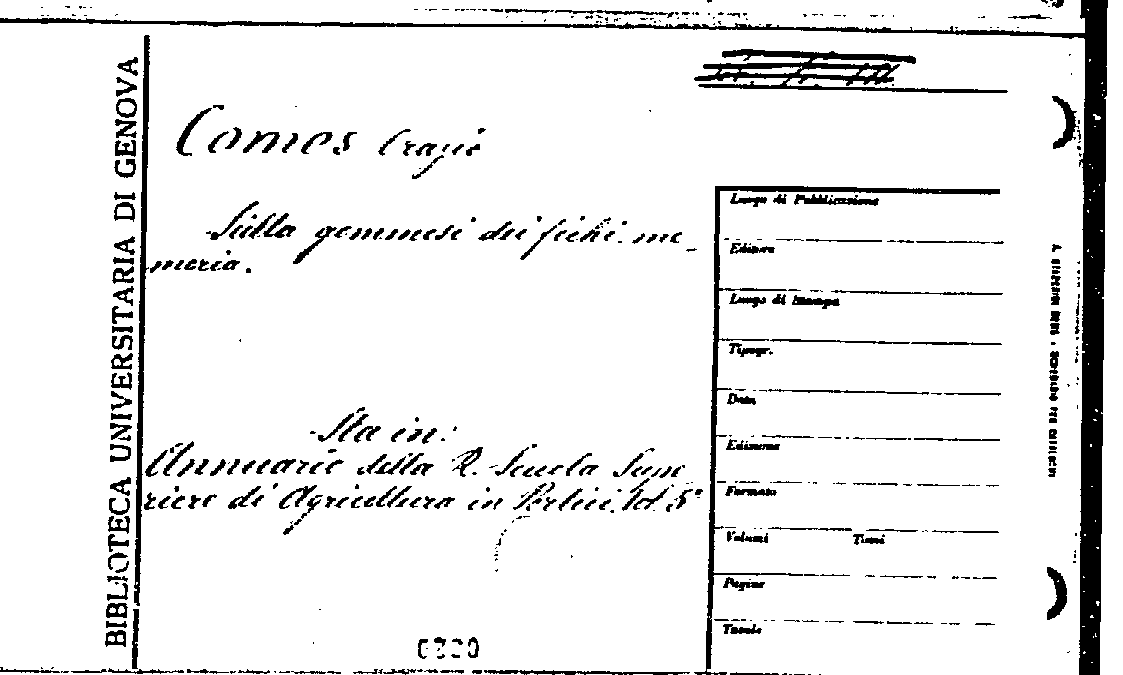 BIBLIOTECA UNIVERSITARIA DI GENOVA
Comes Orazio
Sulla gommosi dei fichi. me_
moria.
Sta in:
Annuario della R. Scuola Supe
riore di Agricoltura in Portici. Vol. 5°
Luogo di Pubblicazione
Editore
Luogo di Stampa
Tipogr.
Data
Edizione
Formato
Volumi Tomi
Pagine
Tavole